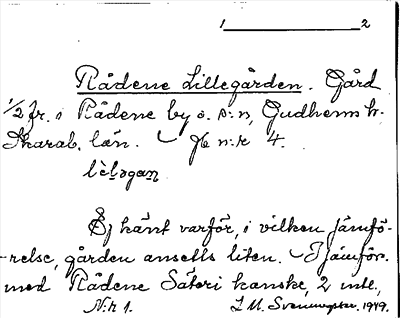 1 2
Rådene Lillegården. Gård
1/2 fr. i Rådene by o. s:n, Gudhems h.
Skarab. län. Jb n:r 4.
lèləgan
Ej känt varför, i vilken jämfö-
-relse, gården ansetts liten. I jämför.
med Rådene Säteri kanske, 2 mtl.,
N:r 1. 1949.